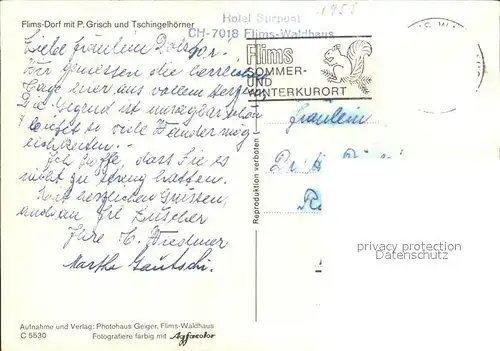 Flims-Dorf mit P. Grisch und Tschingelhörner
1958
Hotel Surpunt
CH-7018 Flims-Waldhaus
Flims
SOMMER-
UND
WINTERKURORT
Liebe Fräulein
Wir geniessen die herrlichen
Tage hier aus vollem Herzen.
Die Gegend ist unsagbar schön
so viele Wandermög
lichkeiten. -
Ich hoffe, dass Sie es
nicht zu streng hatten.
Mit herzlichen Grüssen,
auch an Frl. Lüscher
Ihre C. Wiedmer
Martha Gautschi.
Fräulein
Reproduktion verboten
privacy protection
ansichtskarten
Aufnahme und Verlag: Photohaus Geiger, Flims-Waldhaus
C 5530
Fotografiere farbig mit Agfacolor